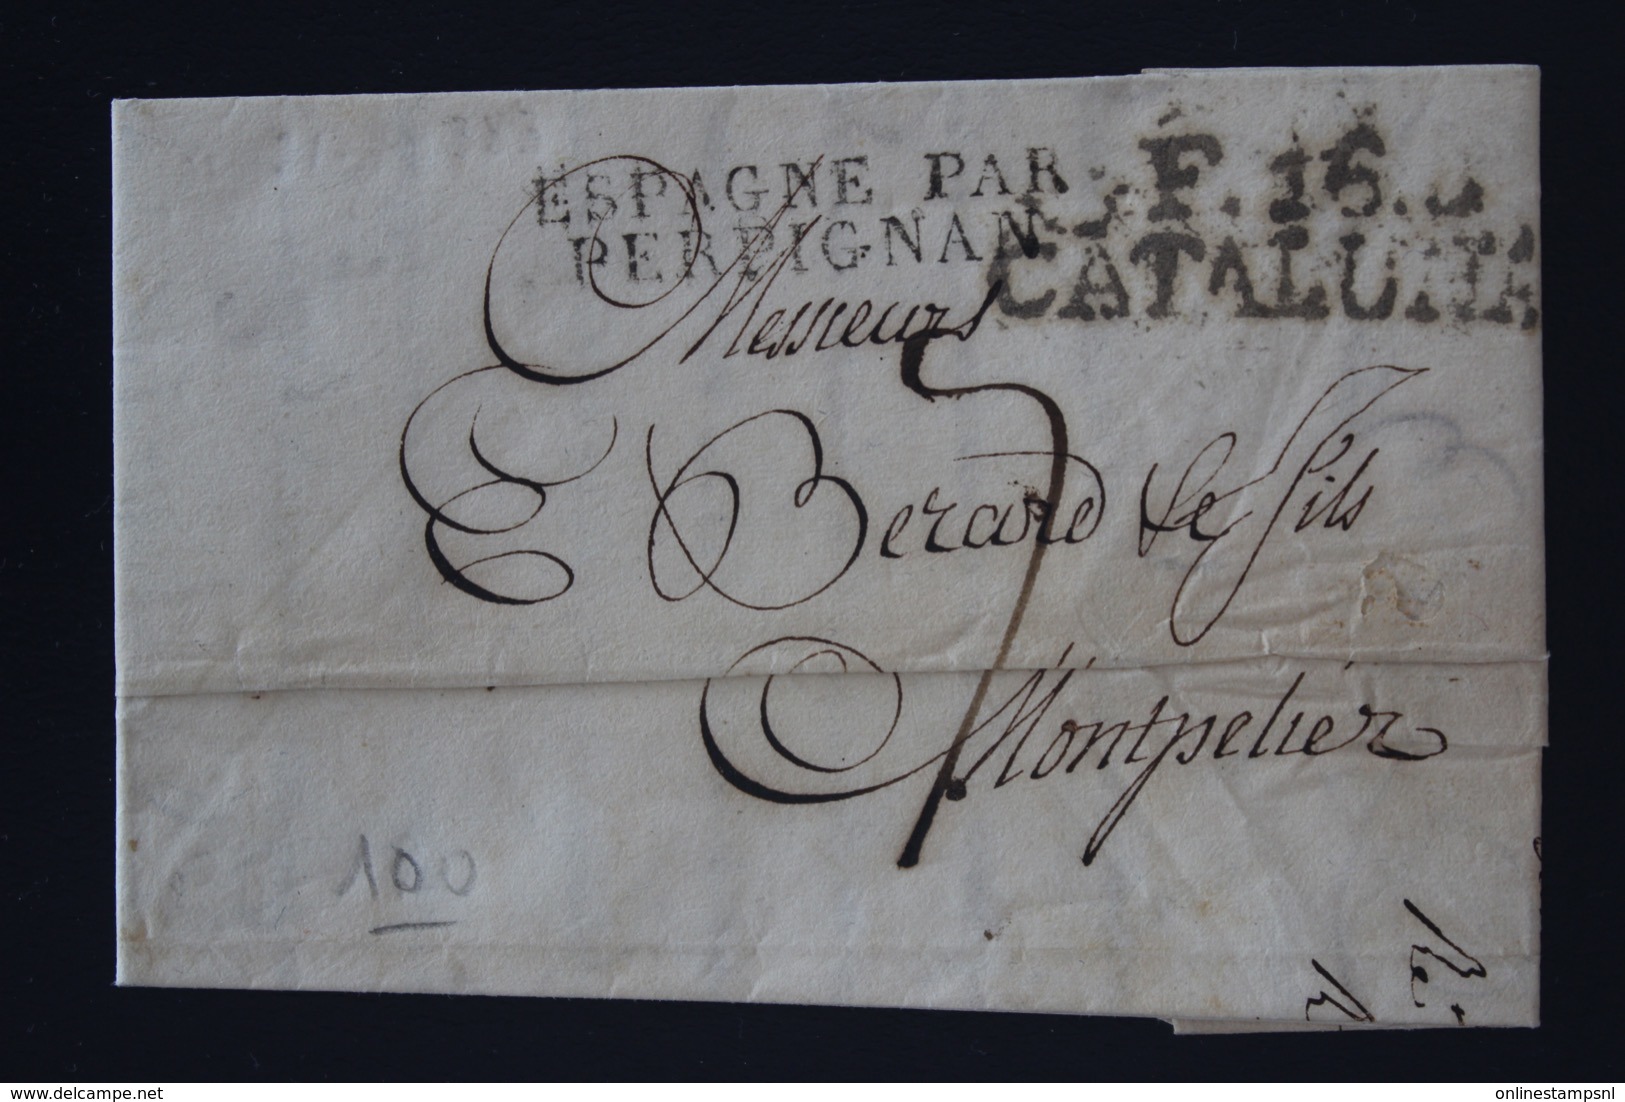 ESPAGNE PAR
PERPIGNAN
F.16.
CATALUÑA
Messieurs
E Berard & Fils
Montpelier
7
100
onlinestampsnl